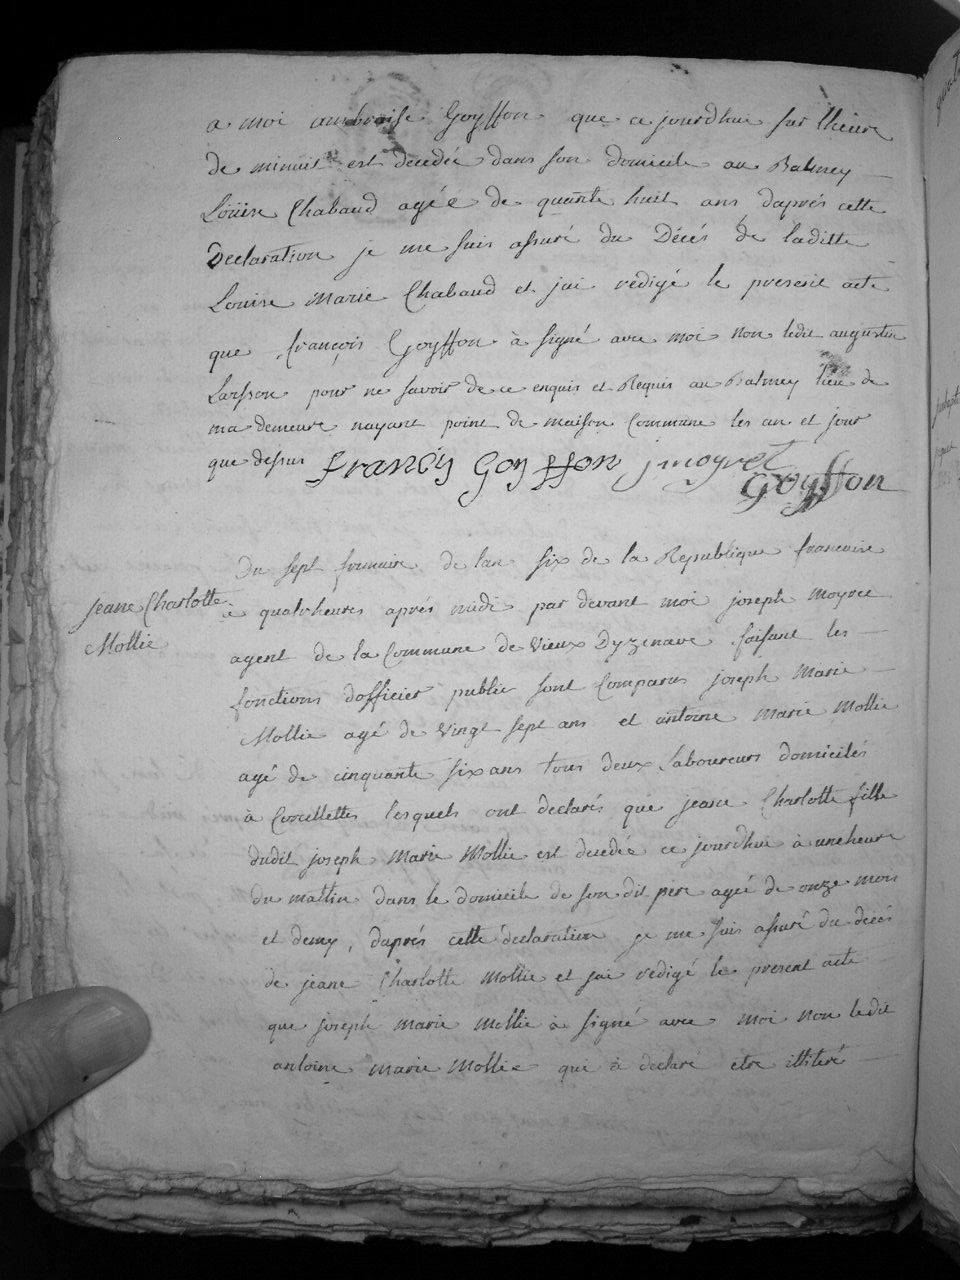 a moi ambroise Goyffon que ce jourdhui sur lheure
de minuit est decedée dans son domicile au Balmey
Loüise Chabaud agéé de quarante huit ans daprés cette
Declaration je me suis assuré du Décés de laditte
Louise Marie Chabaud et jai redigé le present acte
que françois Goyffon à signé avec moi non ledit augustin
Larsson pour ne savoir de ce enquis et Requis au Balmey lieu de
ma demeure nayant point de maison Commune les an et jour
que dessus francois Goyffon j moyret
Goyffon
Jeane Charlotte
Mollie
Du sept frimaire de lan six de la Republique francaise
à quatrheures aprés midi par devant moi joseph moyret
agent de la Commune de Vieux Dyzenave faisant les
fonctions dofficier public sont Comparus joseph Marie
Mollie agé de vingt sept ans et antoine Marie Mollie
agé de cinquante six ans tous deux Laboureurs domiciliés
à Crocellettes lesquels ont declarés que jeane Charlotte fille
dudit joseph Marie Mollie est decedée ce jourdhui à une heure
du mattin dans le domicile de son dit pere ageé de onze mois
et demy, daprés cette declaration je me suis assuré du décés
de jeane Charlotte Mollie et jai redigé le present acte
que joseph marie Mollie à signé avec moi non ledit
antoine Marie Mollie qui à declaré etre illiteré